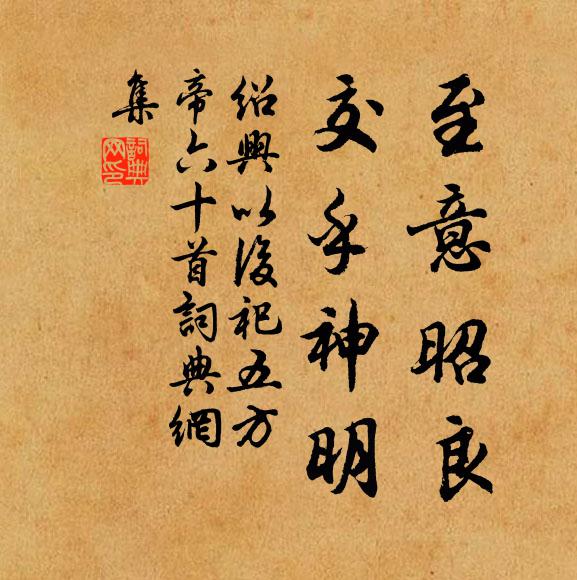 至意昭良
交乎神明
紹興以後祀五方
帝六十首詞典網
集
詞典
网印